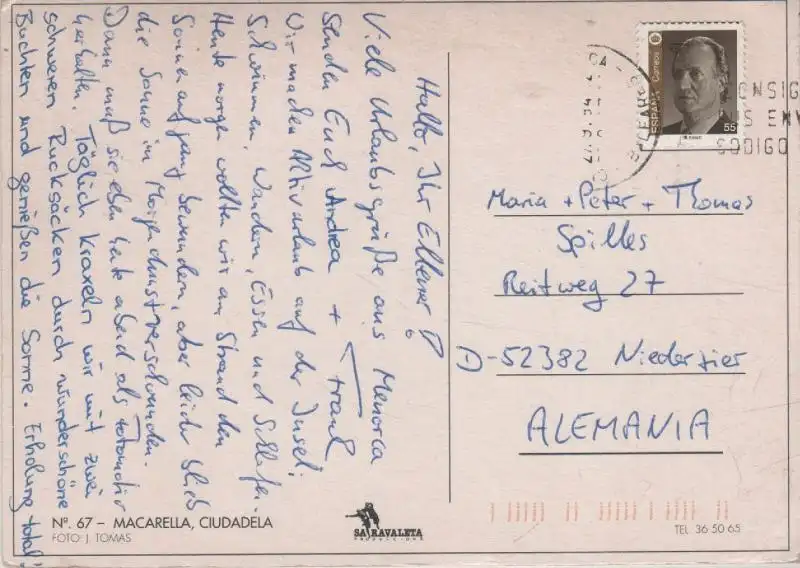 Hallo, Ihr Ellener!
Viele Urlaubsgrüße aus Menorca
senden Euch Andrea + Frank
Wir machen Aktivurlaub auf der Insel:
Schwimmen, Wandern, Essen und Schlafen.
Heute morgen wollten wir am Strand den
Sonnenaufgang bewundern, aber leider blieb
die Sonne in Morgendunst verschwunden.
Dann muß sie eben heute abend als Fotomotiv
herhalten. Täglich kraxeln wir mit zwei
schweren Rucksäcken durch wunderschöne
Buchten und genießen die Sonne. Erholung total!
ESPAÑA Correos
55
CODIGO
Maria + Peter + Thomas
Spilles
Reitweg 27
D-52382 Niederzier
ALEMANIA
Nº. 67 – MACARELLA, CIUDADELA
FOTO: J. TOMAS
SA RAVALETA
PRODUCCIONS
TEL. 36 50 65